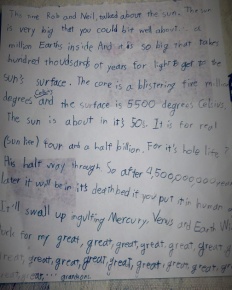 The one Rob and Neil, talked about the sun. The sun
is very big that you could bit well about... a
million Earths inside And it is so big that takes
hundred thoudsands of years for light to get to the
sun's surface. The core is a blistering five million
degrees Celsius and the surface is 5500 degrees Celsius.
The sun is about in it's 50s. It is for real
(sun life) four and a half billion. For it's hole life?
His half way through. So after 4,500,000,000
later it will be in it's deathbed if you put it in human
It'll swall up ingulfing Mercury, Venus and Earth
luck for my great, great, great, great, great, great
great, great, great, great, great, great, great, great
great, great,